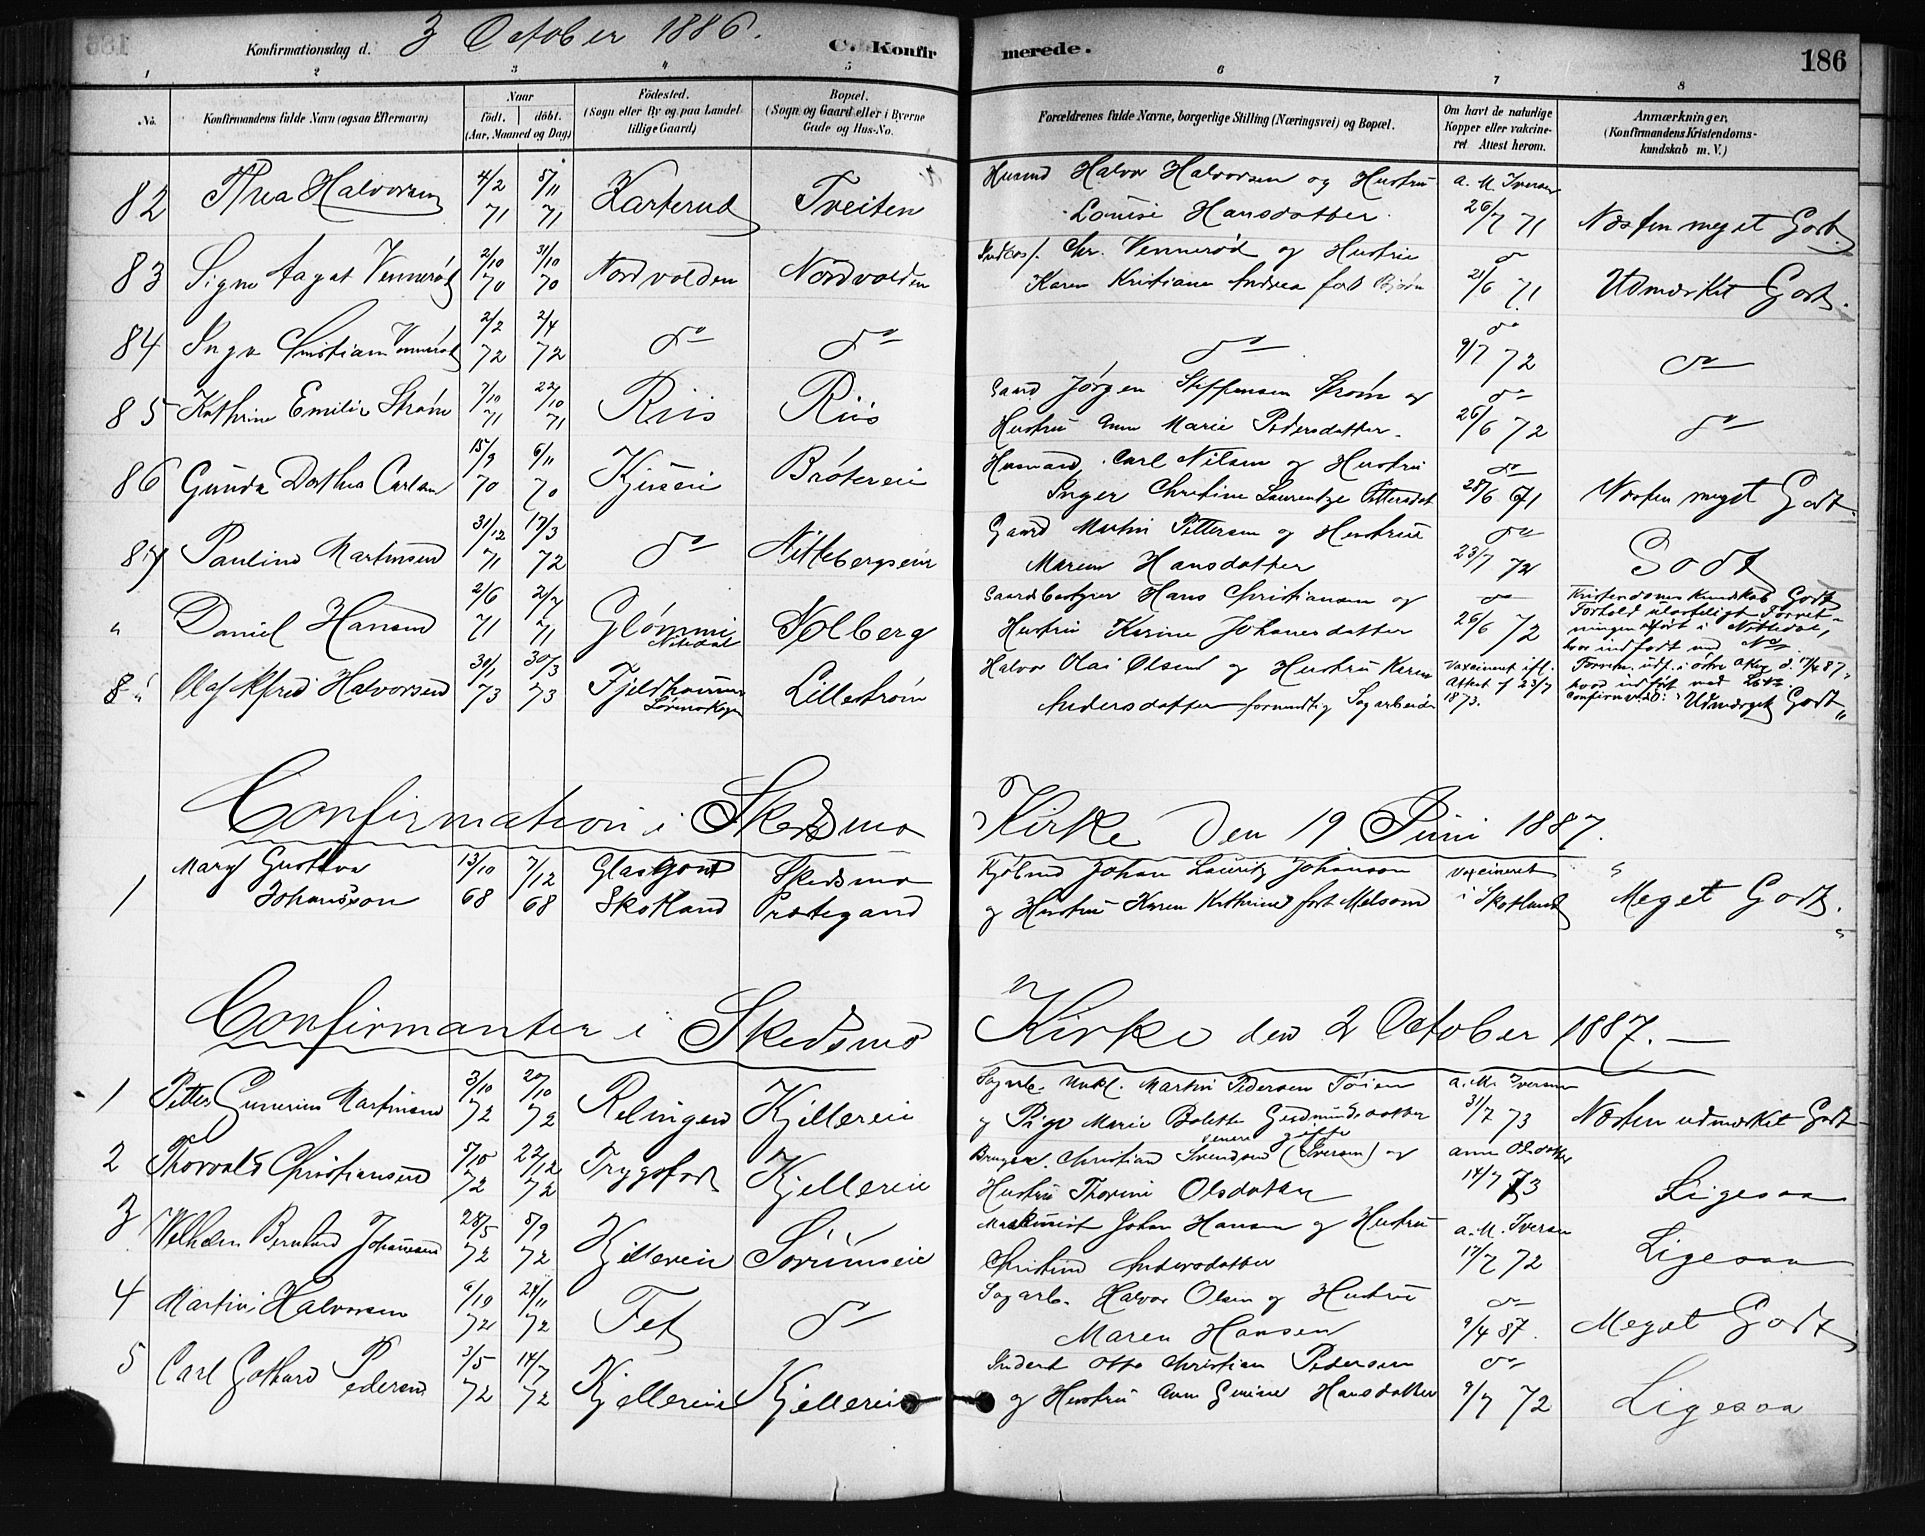 Konfirmationsdag d. 3 October 1886. C. Konfirmerede. 186
1 2 3 4 5 6 7 8
No. Konfirmandens fulde Navn (ogsaa Efternavn) Naar födt. döbt. (Aar, Maaned og Dag) Födested. (Sogn eller By og paa Landet tillige Gaard) Bopæl. (Sogn og Gaard eller i Byerne Gade og Hus-No.
Forældrenes fulde Navne, borgerlige Stilling (Næringsvei) og Bopæl. Om havt de naturlige Kopper eller vakcineret Attest herom. Anmærkninger, (Konfirmandens Kristendomskundskab m. V.)
82 Thea Halvorsen 4/2 71 5/11 71 Karterud Tveiten Husmd Halvor Halvorsen og Hustru
Louise Hansdatter. a. M. Iversen 26/7 71 Næsten meget Godt.
83 Signe Aagat Vennerød 2/10 70 31/10 70 Nordvolden Nordvolden Chr. Vennerød og Hustru
Karen Kristiane Andrea født do 21/6 71. Udmærket Godt.
84 Inga Christiane Vennerød 2/2 72 2/4 72 do do do do 9/7 72 do
85 Kathrine Emilie Strøm 7/10 71 22/10 71 Riis Riis Gaard Jørgen Steffensen Strøm og
Hustru Anne Marie Pedersdatter. do 26/6 72 do
86 Gunda Dorthea Carlsen 15/9 70 6/11 70 Kjuseie Brøtereie Husmand Carl Nilsen og Hustru
Inger Christine Laurentze Pettersdat do 28/6 71 Næsten meget Godt.
87 Pauline Martinsen 31/12 71 17/3 72 do Nittebergseie Gaard Martin Pettersen og Hustru
Maren Hansdatter do 23/7 72 Godt
" Daniel Hansen 2/6 71 2/7 71 Glømmi Nitedal Solberg Gaardbestyrer Hans Christiansen og
Hustru Karine Johannesdatter do 26/6 72 Kristendomskundskab Godt
Forhold ulasteligt Forretningen udført i Nittedal,
hvor indført med No
88 Olaf Alfred Halvorsen 30/1 73 30/3 73 Fjeldhammer Lørenskogen Lillestrøm Halvor Olai Olsen og Hustru Karen
Andersdatter forhenværende Sagarbeider Vaxcineret ifl. Attest af 23/7 1873. Forretn. udf. i østre Aker d. 17/4 87,
hvor indført med
Confirmeret: Udmærket Godt "
Confirmation i Skedsmo Kirke den 19 Juni 1887.
1 Mary Gustava Johansson 13/10 68 7/12 68 Glasgow Skotland Skedsmo Prestegaard Kjøbmd Johan Lauritz Johanson
og Hustru Karen Kathrine født Melsom vaxcineret i Skotland Meget Godt.
Confirmanter i Skedsmo Kirke den 2 October 1887. —
1 Petter Gunerius Martinsen 3/10 72 20/10 72 Relingen Kjellereie Sagarb. Unkl. Martin Pedersen
og Pige Marie Bolette Gudmundsdatter a. M. Iversen 31/7 73 Næsten udmærket Godt
2 Thorvald Christiansen 5/10 72 22/12 72 Trygstad Kjellereie Bruger. Christian Svendsen (Iversen) og
senere gifte
Hustru Thorine Olsdatter anne Olsdatter 14/7 73 Ligesaa
3 Wilhelm Bernhard Johansen 28/5 72 8/9 72 Kjellereie Sørumseie Maskinist Johan Hansen og Hustru
Christine Andersdatter a. M. Iversen 17/7 72 Ligesaa
4 Martin Halvorsen 6/10 72 24/11 72 Fet do Sagarb. Halvor Olsen og Hustru
Maren Hansen do 9/4 87. Meget Godt
5 Carl Gothard Pedersen 3/5 72 14/7 72 Kjellereie Kjellereie Inderst Otto Christian Pedersen
og Hustru Anne Gurine Hansdatter do 9/7 72 Ligesaa